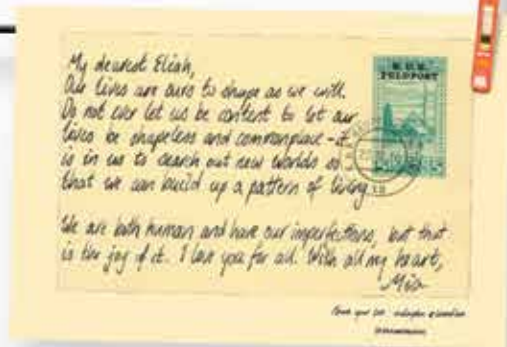 My dearest Eliah,
Our lives are ours to shape as we will.
Do not ever let us be content to let our
lives be shapeless and commonplace - it
is in us to search out new worlds so
that we can build up a pattern of living.
We are both human and have our imperfections, but that
is the joy of it. I love you for all. With all my heart,
Mia
K.U.K.
FELDPOST